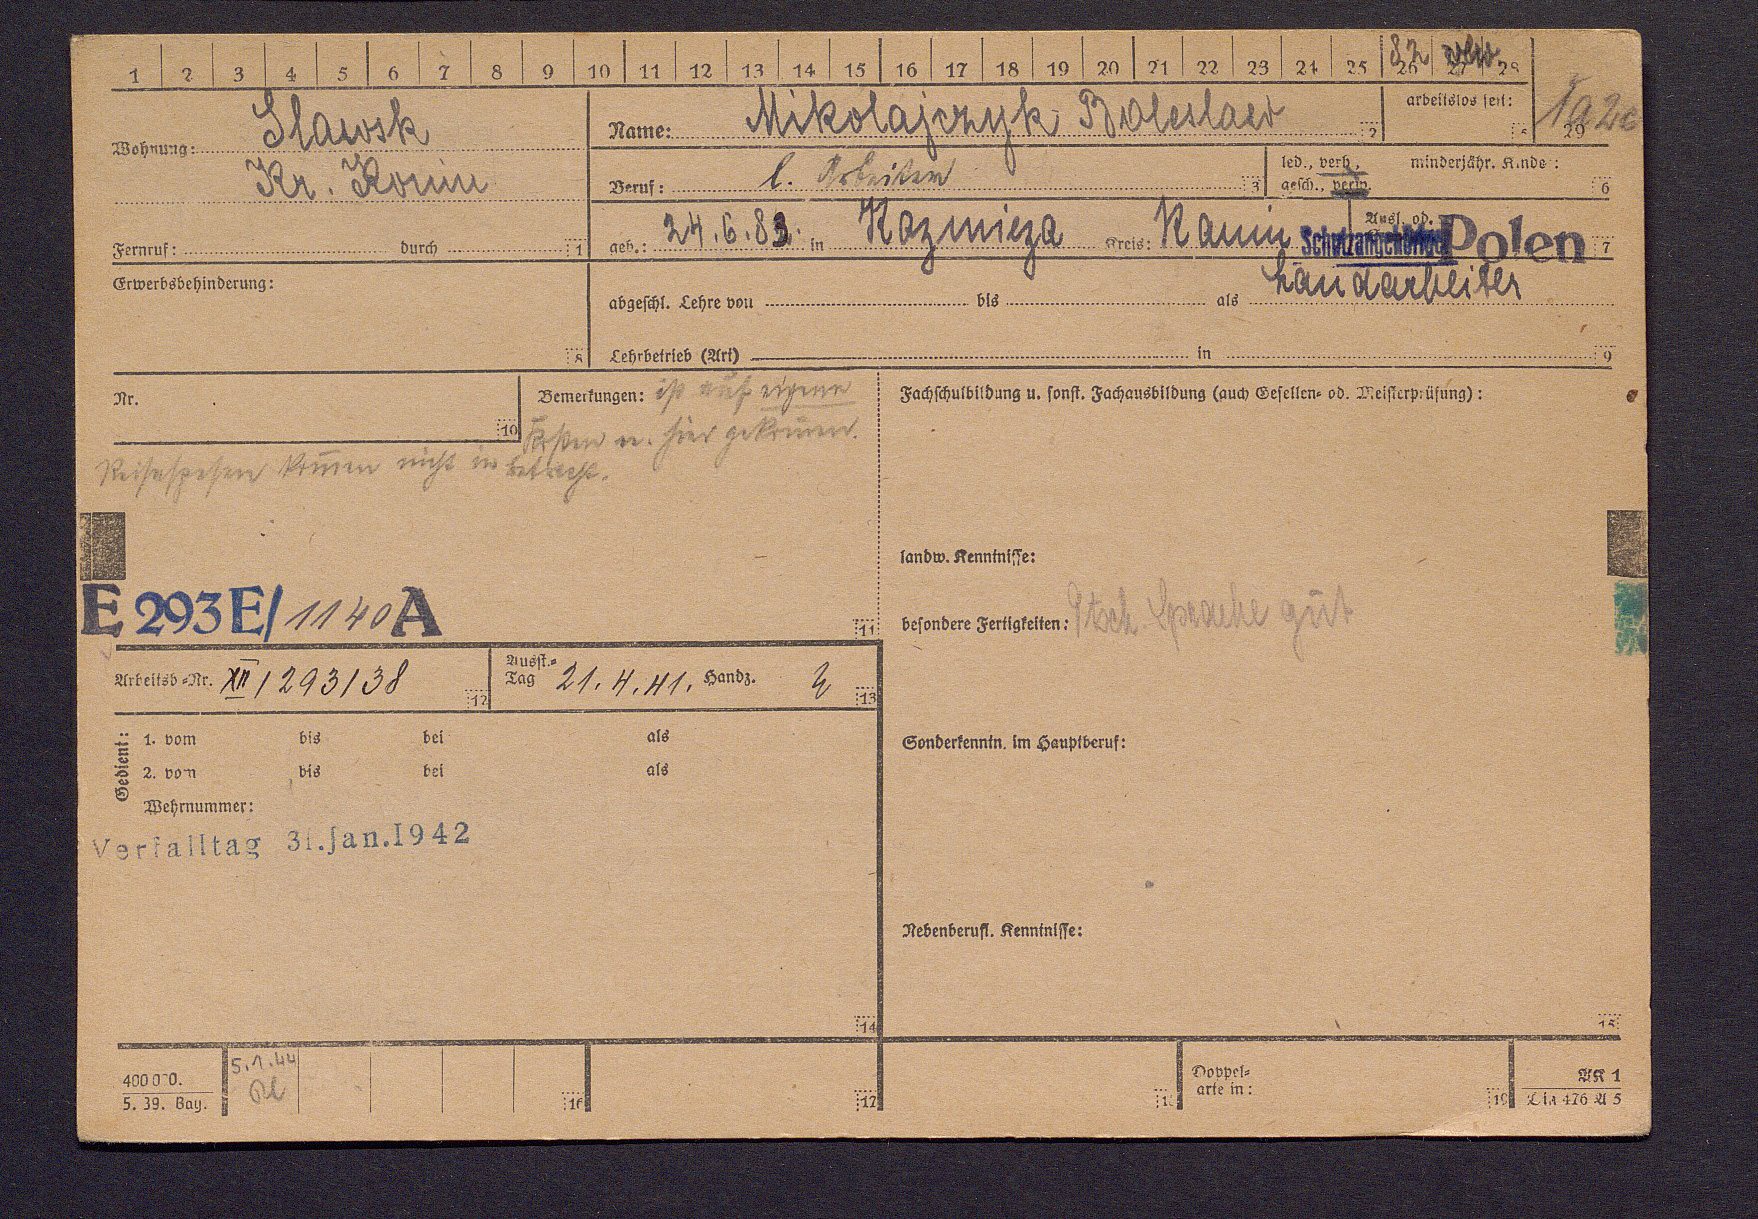 1 2 3 4 5 6 7 8 9 10 11 12 13 14 15 16 17 18 19 20 21 22 23 24 25 26 27 28
82
29
Wohnung: Slawsk
Kr. Konin
Fernruf: durch 1
Name: Mikolajczyk Boleslaw 2
arbeitslos seit: 5
Beruf: l. Arbeiter 3
led., verh.,
gesch., verw.
minderjähr. Kinder: 6
geb.: 24.6.83. in Kazmieza Kreis: Konin
Ausl. od.
Schutzangehöriger Polen 7
Erwerbsbehinderung: 8
abgeschl. Lehre von bis als Landarbeiter
Lehrbetrieb (Art) in 9
Nr. 10
Bemerkungen: ist auf eigene
Kosten n. hier gekommen.
Reisespesen kommen nicht in betracht.
E 293 E/ 1140 A 11
Arbeitsb.-Nr. XII/293/38 12
Ausst.-
Tag 21.4.41. Handz. 13
Gedient:
1. vom bis bei als
2. vom bis bei als
Wehrnummer:
Verfalltag 31.Jan.1942
14
Fachschulbildung u. sonst. Fachausbildung (auch Gesellen- od. Meisterprüfung):
landw. Kenntnisse:
besondere Fertigkeiten: Dtsch. Sprache gut
Sonderkenntn. im Hauptberuf:
Nebenberufl. Kenntnisse:
15
400 000.
5. 39. Bay.
5.1.44
16
17
18
Doppel-
karte in: 19
AK 1
Din 476 A 5